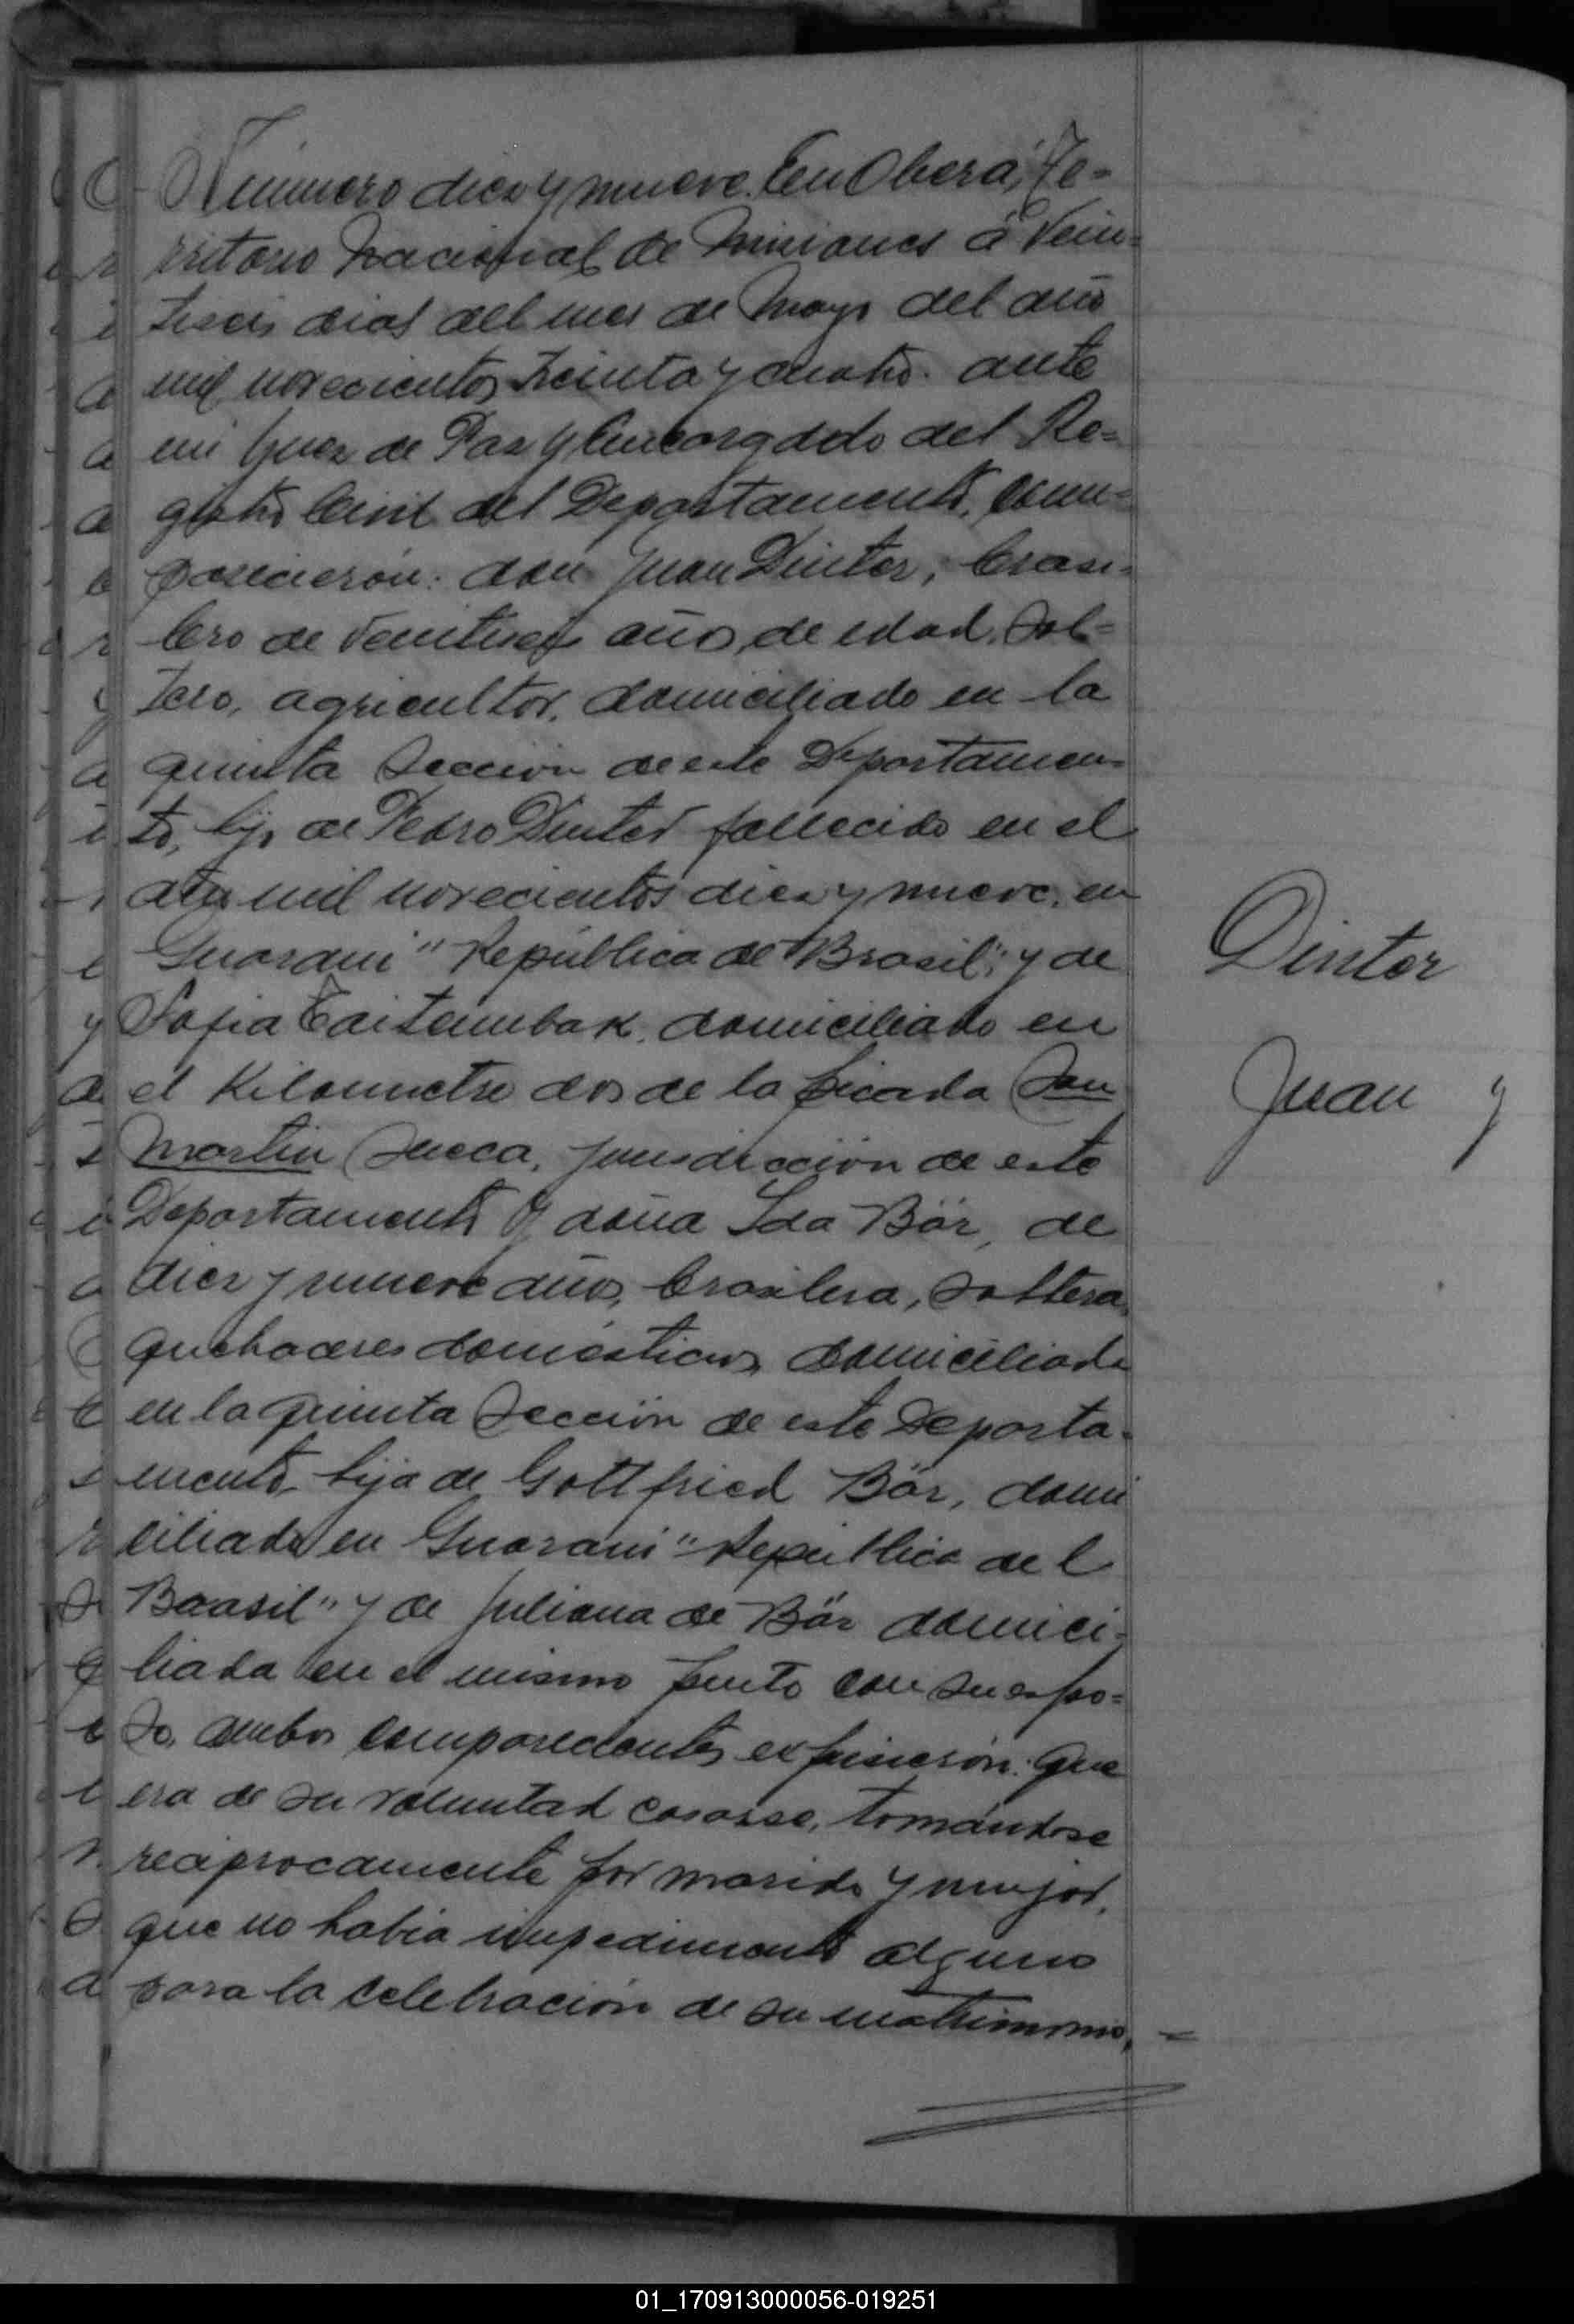 Número diez y nueve. En Oberá, Te-
rritorio Nacional de Misiones á Vein-
tiseis dias del mes de Mayo del año
mil novecientos treinta y cuatro. ante
mi Juez de Paz y Encargado del Re-
gistro Civil del Departamento, Com-
parecieron: don Juan Dinter, brasi-
lero de Veintiseis años de edad, Sol-
tero, agricultor, domiciliado en la
quinta Sección de este Departamen-
to, hijo de Pedro Dinter fallecido en el
año mil novecientos diez y nueve, en
Guarani "República de Brasil"; y de
Sofia domiciliado en
el Kilometro dos de la picada San
Martin Sueca, jurisdicción de este
Departamento y doña Ida Bär, de
diez y nueve años, brasilera, Soltera,
quehaceres domésticos domiciliada
en la quinta Sección de este Departa-
mento, hija de Gottfried Bär, domi
ciliado en Guarani "República del
Brasil" y de Juliana de Bär domici-
liada en el mismo punto con su espo-
so, ambos comparecientes expusierón: que
era de su voluntad casarse, tomándose
reciprocamente por marido y mujer,
que no habia impedimento alguno
para la celebración de su matrimonio, =
Dinter
Juan y
01_170913000056-019251